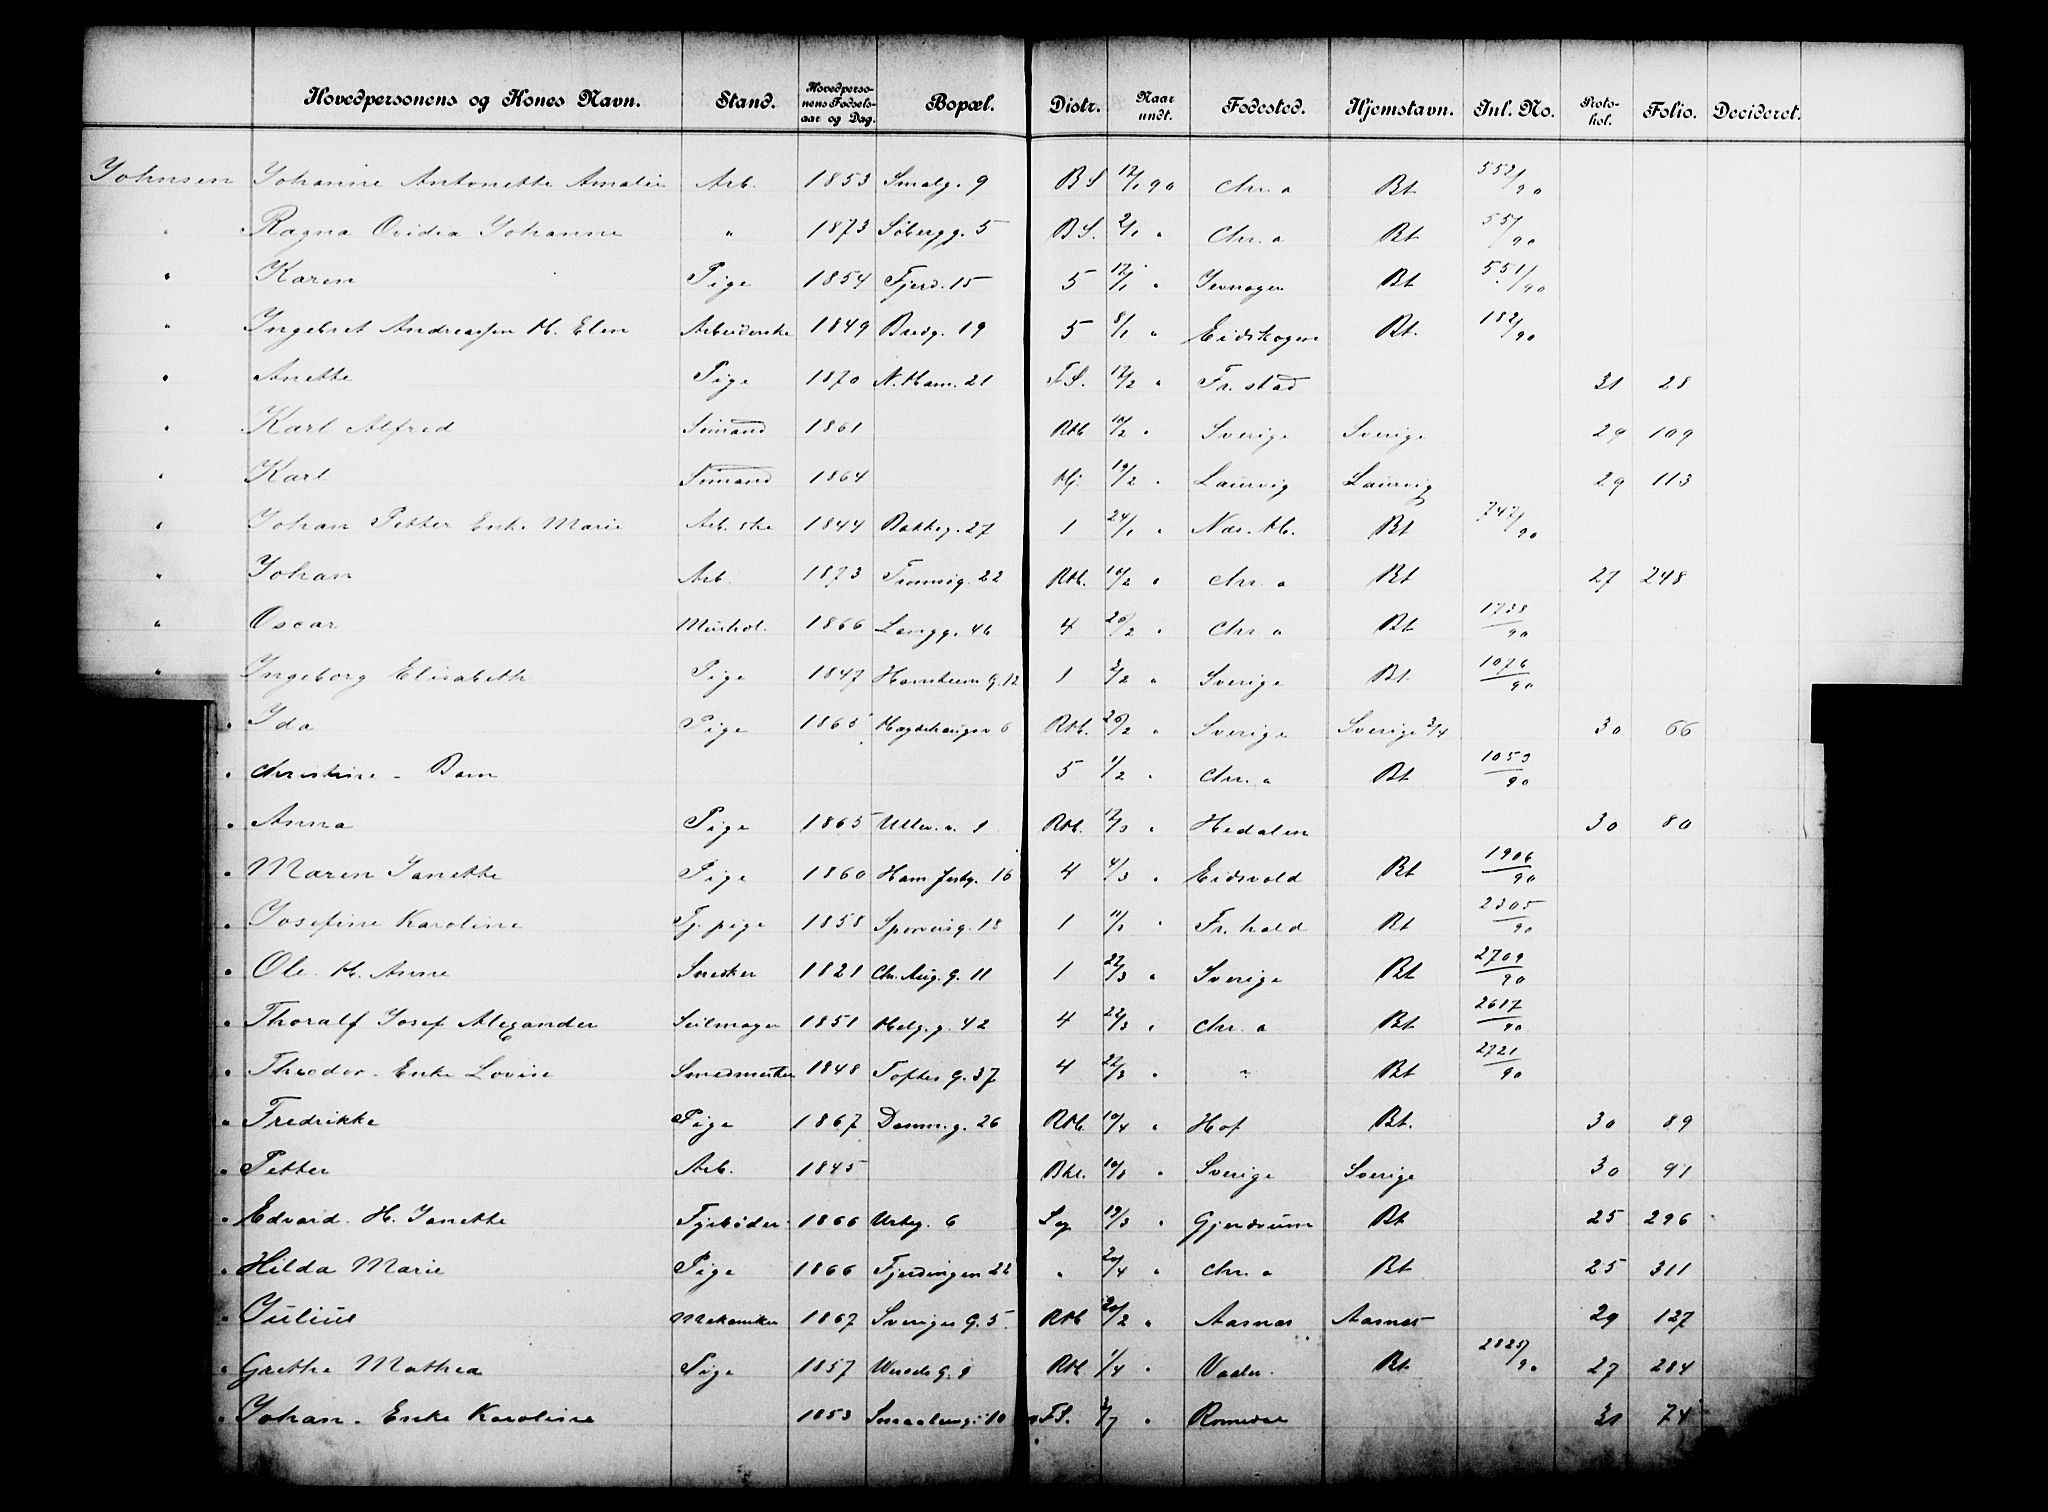 Hovedpersonens og Kones Navn. Stand. Hovedpersonens Fødselsaar og Dag. Bopæl. Distr. Naar undt. Fødested. Hjemstavn. Inl. No. Protokol. Folio. Decideret.
Johnsen Johanne Antonette Amalie Arb. 1853 Smalg. 9 BS 12/1 90 Chr. a Bt 552/90
" Ragna Ovidia Johanne " 1873 Søbergg. 5 BS. 2/1 " Chr. a Bt 55/90
" Karen Pige 1854 Fjerd. 15 5 12/1 " Jevnager Bt 551/90
" Ingebret Andreassen H. Elen Arbeiderske 1849 Bredg. 19 5 8/1 " Eidskogen Bt. 182/90
" Anette Pige 1870 N. Ham. 21 FS. 12/2 " Fr. stad 31 28
" Karl Alfred Sømand 1861 RH 10/2 " Sverige Sverige 29 109
" Karl Sømand 1864 Hj. 19/2 " Laurvig Laurvig 29 113
" Johan Petter Enke Marie Arb. ske 1844 Bakkeg. 27 1 24/1 " Næs. H. Bt 747/90
" Johan Arb. 1873 Tromsøg. 22 RH. 10/2 " Chr. a Bt 27 248
" Oscar Murhdl. 1866 Langg. 46 4 20/2 " Chr. a Bt 1738/90
" Ingeborg Elisabeth Pige 1847 G. 12 1 3/2 " Sverige Bt 1076/90
" Ida Pige 1865 6 RH. 26/2 " Sverige Sverige 2/4 30 66
" Christine - Barn 5 1/2 " Chr. a Bt 1053/90
" Anna Pige 1865 Ullev. v. 1 RH. 12/3 " Hedalen 30 80
" Maren Janette Pige 1860 Hamferbg. 16 4 4/3 " Eidsvold Bt 1906/90
" Josefine Karoline Tj. pige 1858 Sporveisg. 18 1 11/3 " Fr. hald Bt 2305/90
" Ole. H. Anne Snedker 1821 Chr. Aug. G. 11 1 22/3 " Sverige Bt 2709/90
" Thoralf Josef Alexander Seilmager 1851 Helg. g. 42 4 22/3 " Chr. a Bt 2617/90
" Theodor. Enke Lovise Smedmester 1848 Toftes G. 37 4 22/3 " " Bt 2721/90
" Fredrikke Pige 1867 Damm. g. 26 RH. 10/4 " Hof Bt. 30 89
" Petter Arb. 1845 Bkl. 10/3 " Sverige Sverige 30 91
" Edvard. H. Janette Fyrbøder 1866 Urteg. 6 Sg 19/3 " Gjerdrum Bt 25 296
" Hilda Marie Pige 1866 Fjerdingen 22 " 20/4 " Chr. a Bt 25 311
" Julius Mekaniker 1867 Sveriges G. 5 RH 20/2 " Aasnæs Aasnæs 29 127
" Grethe Mathea Pige 1857 G. 9 RH. 1/4 " Vaaler. Bt 2825/90 27 284
" Johan. Enke Karoline 1853 Smaalensg. 10 FS. 3/7 " Romedal 31 74